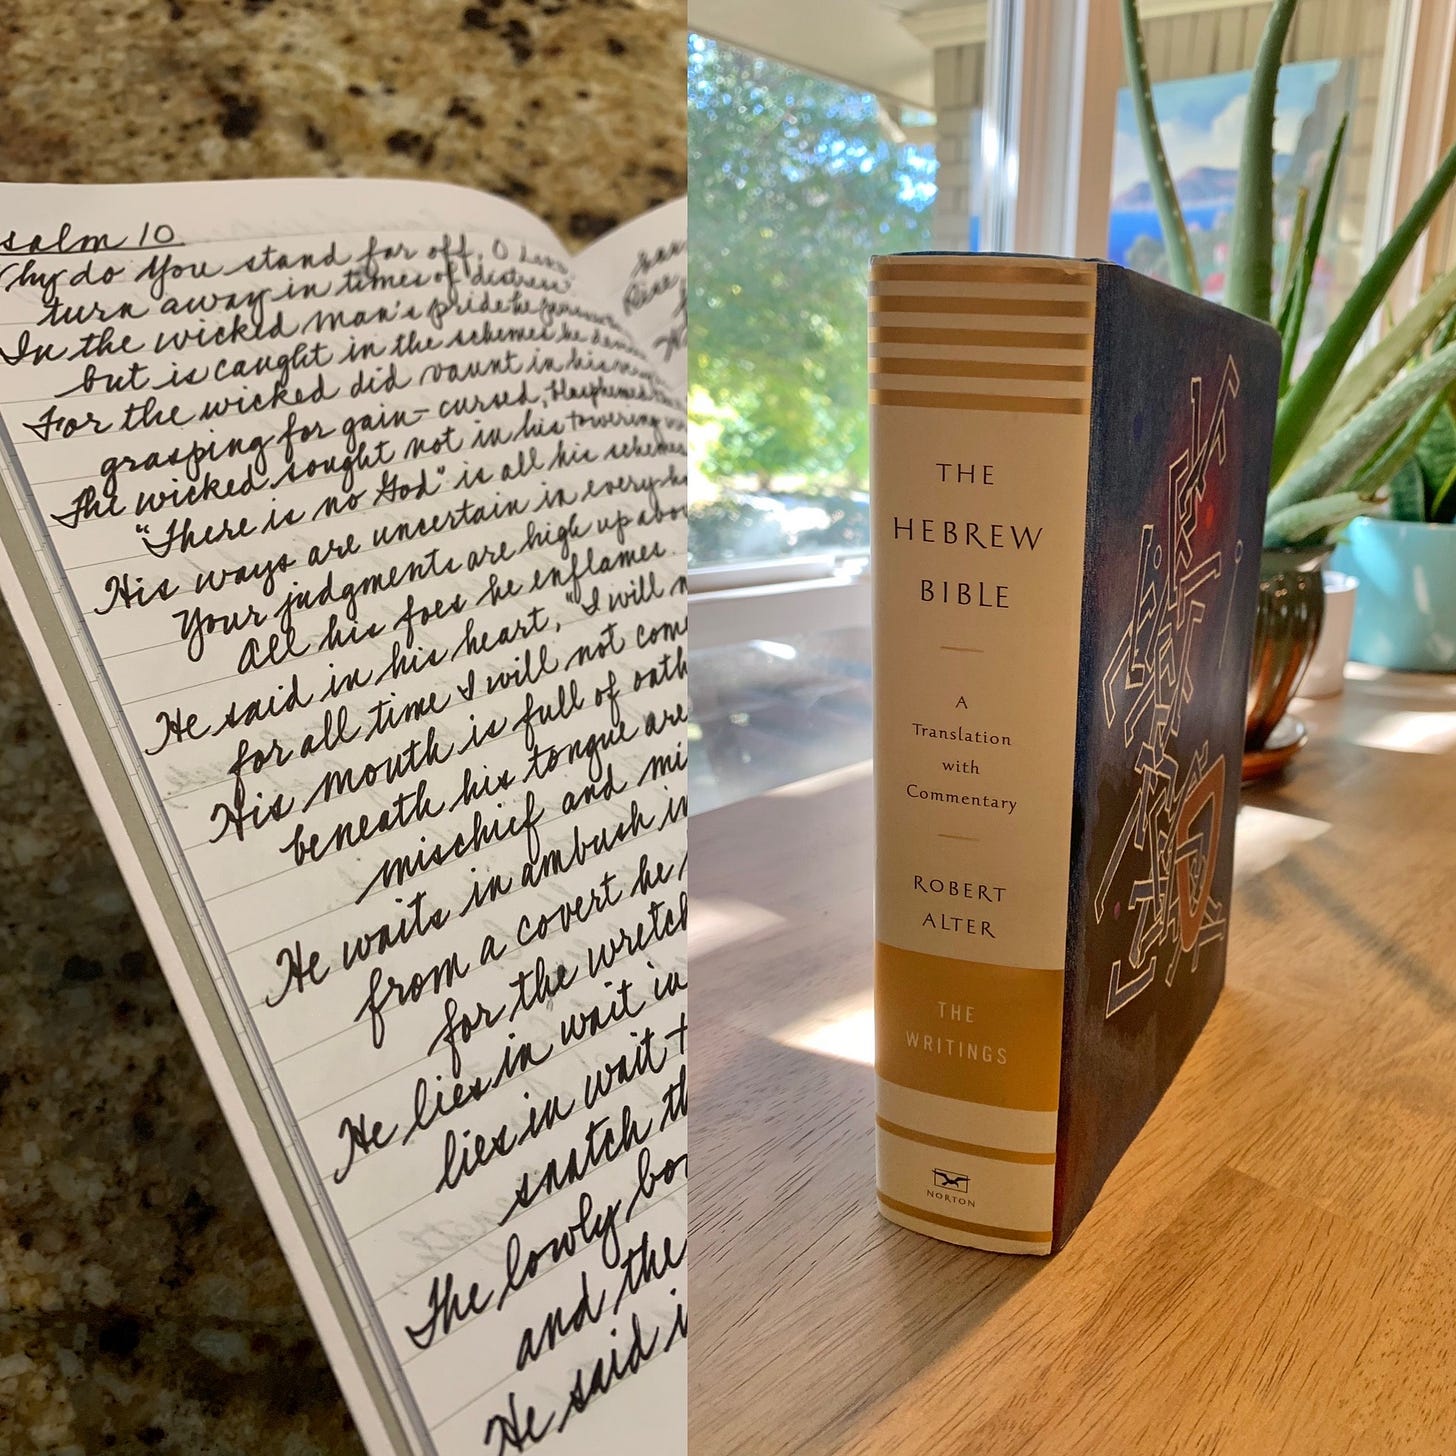 salm 10
hy do You stand far off, O
turn away in times of distress
In the wicked man's pride he
but is caught in the schemes he
For the wicked did vaunt in his
grasping for gain—cursed, blasphemed
The wicked sought not in his towering
"There is no God" is all his schemes
His ways are uncertain in every
Your judgments are high up abov
All his foes he enflames.
He said in his heart, "I will
for all time I will not come
His mouth is full of oath
beneath his tongue are
mischief and mi
He waits in ambush in
from a covert he
for the wretch
He lies in wait in
lies in wait t
snatch th
The lowly bo
and the
He said i
THE
HEBREW
BIBLE
A
Translation
with
Commentary
ROBERT
ALTER
THE
WRITINGS
NORTON